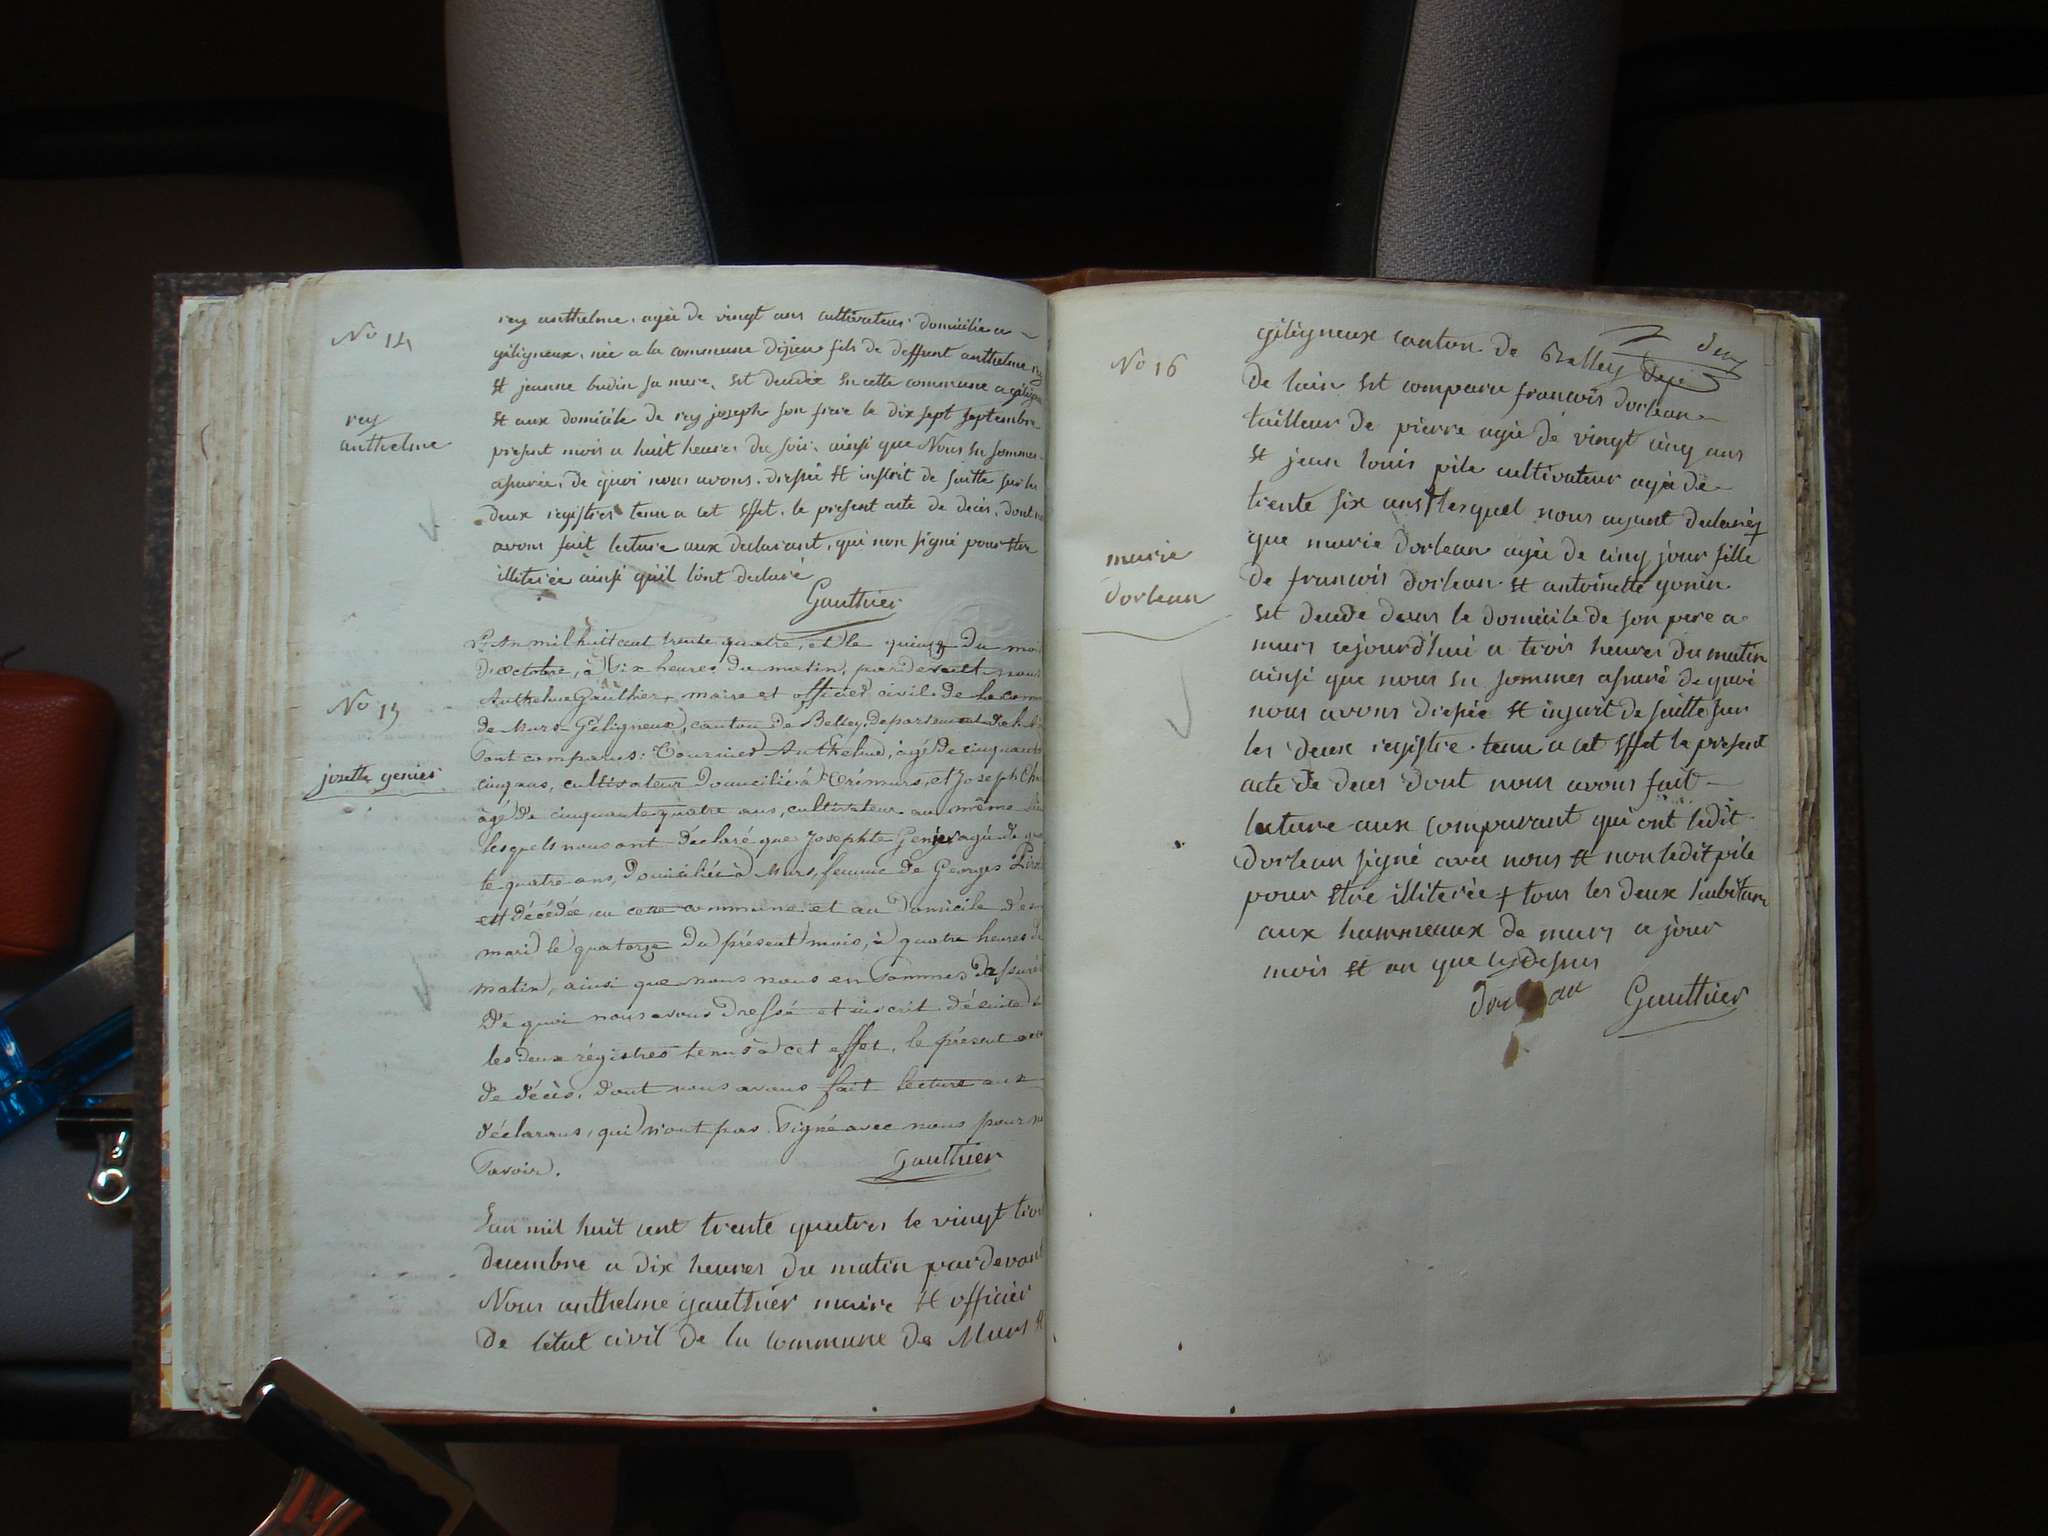 No 14
rey
anthelme
rey anthelme, agée de vingt ans cultivateur domicilié a
géligneux, née a la commune dizieu fils de deffunt anthelme rey
et jeanne budin sa mere, est decedé en cette commune a géligneux
et aux domicile de rey joseph son frere le dix sept septembre
présent mois a huit heures du soir, ainsi que Nous en sommes
asurée, de quoi nous avons dressée et inscrit de suitte sur les
deux registres tenu a cet effet, le present acte de decés, dont
avons fait lecture aux declarant, qui non signé pour etre
illiterée ainsi quil l'ont declaré
Gauthier
No 15
josette genier
L'An mil huit cent trente quatre, et le quinze du mois
D'octobre, à dix heures du matin, pardevant nous
Anthelme Gauthier, maire et officier civil de la com
de Murs-Géligneux, canton de Belley, departement de l'
Sont comparus: Tournier Anthelme, âgé de cinquante
cinq ans, cultivateur domicilié à Crémurs, et Joseph
âgé de cinquante quatre ans, cultivateur au même
lesquels nous ont déclaré que Josephte Genier agée de
te quatre ans, domiciliée à Murs, femme de Georges
est décédée en cette commune et au domicile de
mari le quatorze du présent mois, à quatre heures du
matin, ainsi que nous nous en sommes assuré
De quoi nous avons dressé et inscrit de suite
les deux régistres tenus à cet effet, le présent acte
de décès, dont nous avons fait lecture aux
déclarans, qui n'ont pas signé avec nous pour ne
savoir.
Gauthier
Lan mil huit cent trente quatres le vingt trois
decembre a dix heures du matin pardevant
Nous anthelme gauthier maire et officier
de létat civil de la commune de Murs et
No 16
marie
dorlean
géligneux canton de Belley dep
de lain est comparu francois dorlean
tailleur de pierre agée de vingt cinq ans
et jean louis pile cultivateur agée de
trente six ans lesquel nous ayant declarée
que marie dorlean agée de cinq jour fille
de francois dorlean et antoinette gonin
est decede dans le domicile de son pere a
murs ajourd'hui a trois heures du matin
ainsi que nous en sommes asuré de quoi
nous avons dresée et inscrit de suitte sur
les deux registre tenu a cet effet le present
acte de deces dont nous avons fait
lecture aux comparant qui ont ledit
dorlean signé avec nous et non ledit pile
pour etre illiterée + tous les deux habitant
aux hammeaux de murs a jour
mois et an que cy dessus
Gauthier